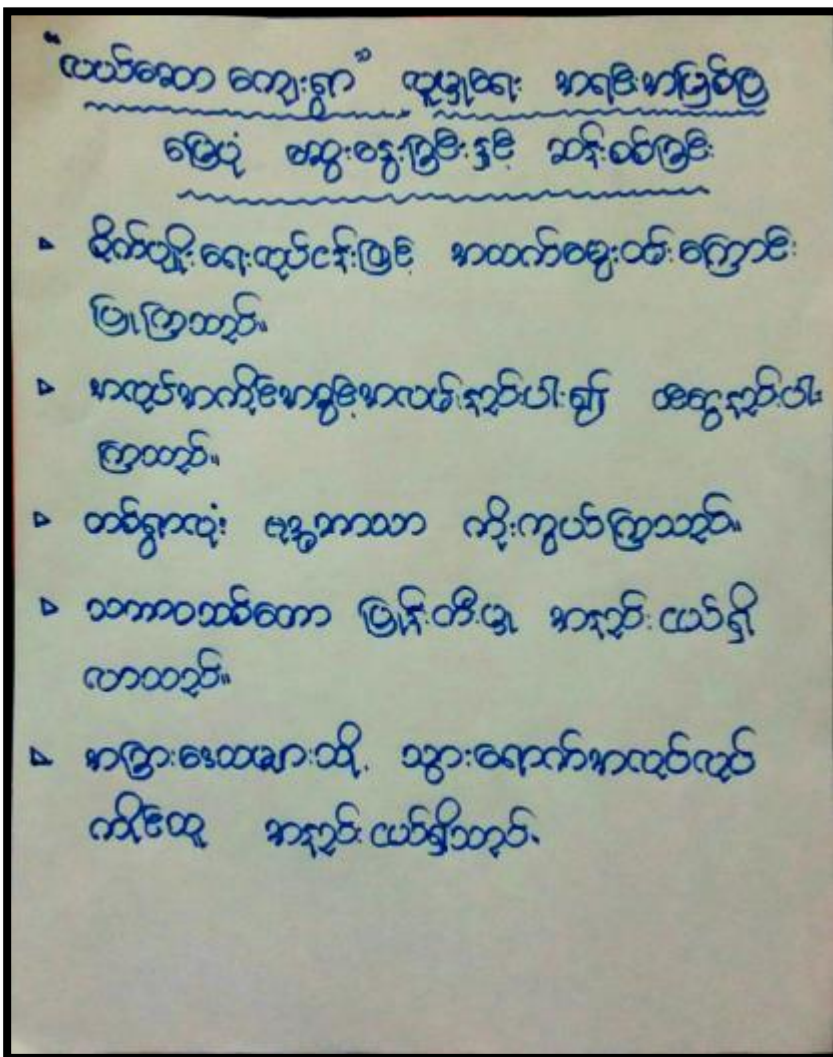 "လယ်ဆော ကျေးရွာ" လူမှုရေး အရင်းအမြစ်ပြ
မြေပုံ ဆွေးနွေးခြင်းနှင့် ဆန်းစစ်ခြင်း
▷ စိုက်ပျိုးရေးလုပ်ငန်းဖြင့် အသက်မွေးဝမ်းကြောင်း
ပြုကြသည်။
▷ အလုပ်အကိုင်အခွင့်အလမ်းနည်းပါး၍ ဝင်ငွေနည်းပါး
ကြသည်။
▷ တစ်ရွာလုံး ဗုဒ္ဓဘာသာ ကိုးကွယ်ကြသည်။
▷ သဘာဝသစ်တော ပြုန်းတီးမှု အနည်းငယ်ရှိ
လာသည်။
▷ အခြားဒေသများသို့ သွားရောက်အလုပ်လုပ်
ကိုင်သူ အနည်းငယ်ရှိသည်။